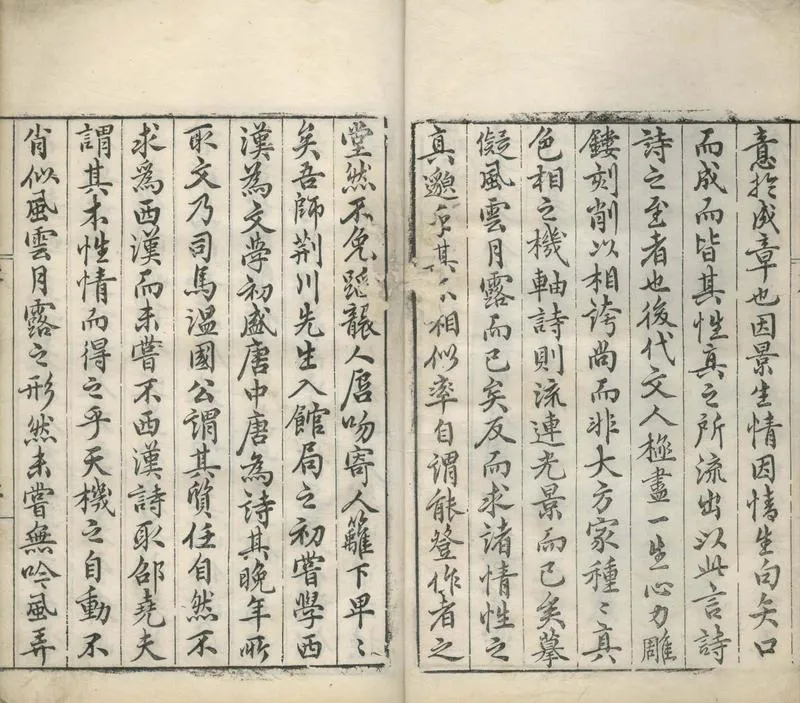 意於成章也因景生情因情生句矢口
而成而皆其性真之所流出以此言詩
詩之至者也後代文人極盡一生心力雕
鏤刻削以相誇尚而非大方家種〻真
色相之機軸詩則流連光景而已矣摹
儗風雲月露而已矣反而求諸情性之
真邈乎其不相似率自謂能登作者之
堂然不免蹈襲人唇吻寄人籬下卑〻
矣吾師荆川先生入館局之初嘗學西
漢為文學初盛唐中唐為詩其晚年所
取文乃司馬溫國公謂其質任自然不
求為西漢而未嘗不西漢詩取邵堯夫
謂其本性情而得之乎天機之自動不
肖似風雲月露之形然未嘗無吟風弄